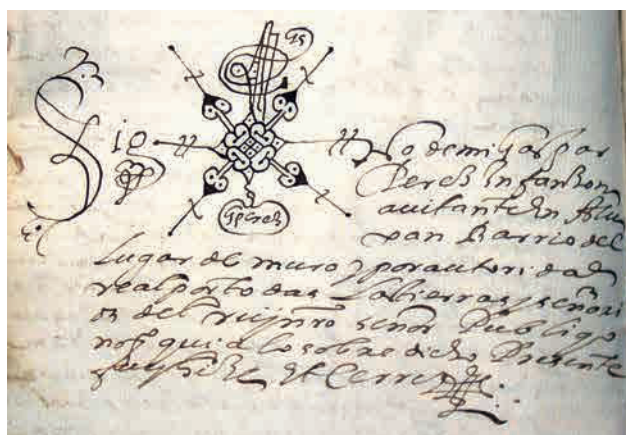 Gs
Sig no de mi Gaspar
Perez Infanzon
Gperez
auitante en
pan Barrio del
lugar de muro y por autoridad
real por todas las tierras y señori
os del rey nro señor Publiqo
not qui a lo sobre dicho Presente
fuy et Cerre